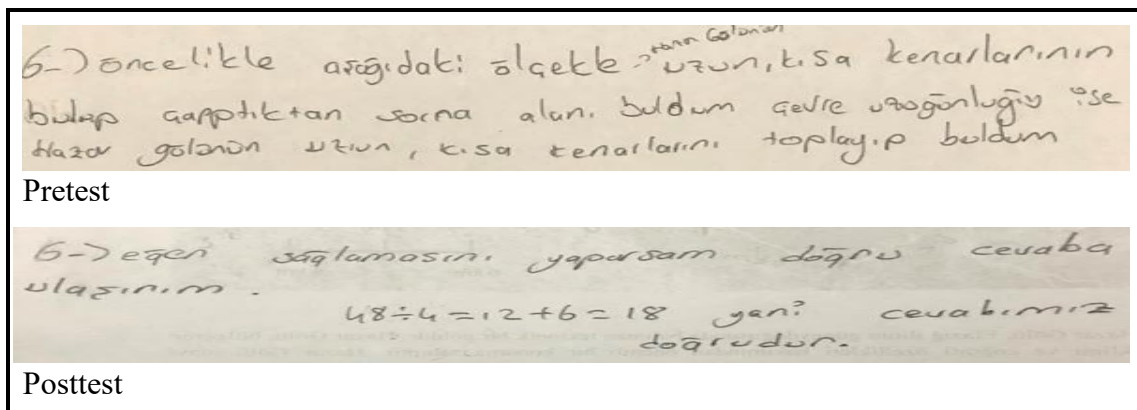 6-) öncelikle aşağıdaki ölçekle Gölünün uzun, kısa kenarlarının
bulup çarptıktan sorna alanı buldum çevre uzogönluğiy ise
Hazar gölönön uzun, kısa kenarlarını toplayıp buldum
Pretest
6-) eğer sağlamasını yaparsam doğru cevaba
ulaşırım.
48÷4=12+6=18 yani cevabımız
doğrudur.
Posttest